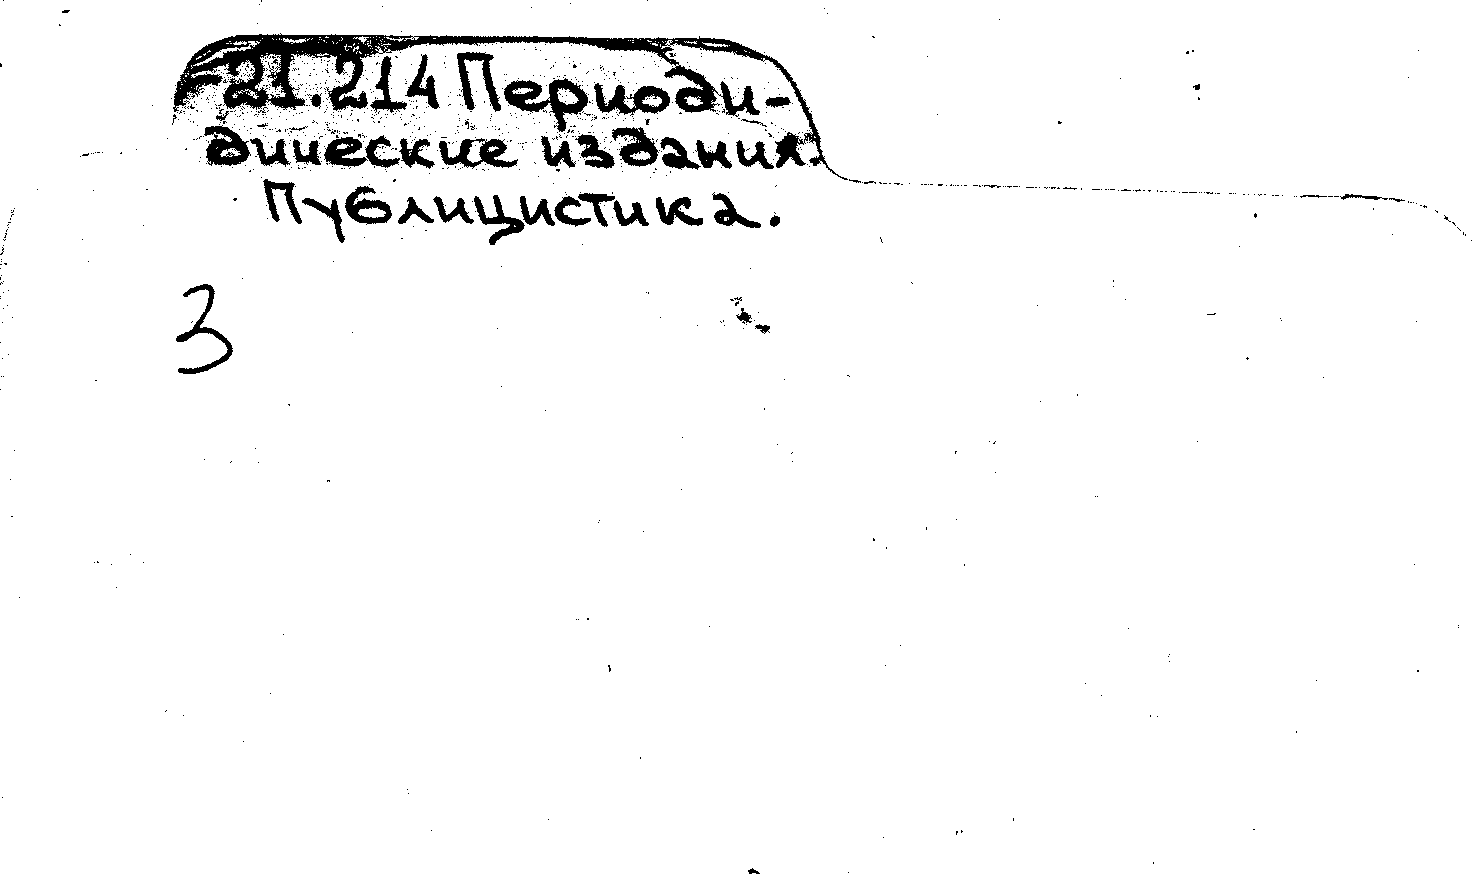 21.214 Периоди-
дические издания.
Публицистика.
3